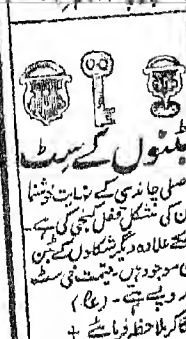 بٹنوں کے سیٹ
اصلی چاندی کے نہایت خوشنما
ان کی شکل قفل کنجی کی ہے۔
علاوہ دیگر شکلوں کے بٹن
موجود ہیں۔ قیمت فی سٹ
روپے ہے۔
کر ملاحظہ فرمائیے +